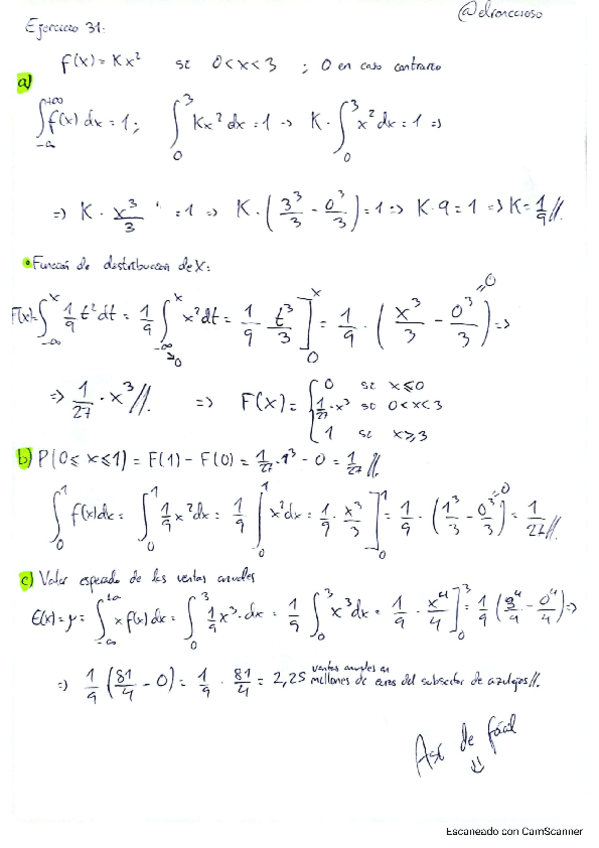 @elroncososo
Ejercicio 31:
f(x) = Kx² si 0<x<3 ; 0 en caso contrario
a)
∫_{-∞}^{+∞} f(x) dx = 1; ∫_0^3 Kx² dx = 1 → K · ∫_0^3 x² dx = 1 ⇒
⇒ K · x³/3 = 1 ⇒ K · (3³/3 - 0³/3) = 1 ⇒ K · 9 = 1 ⇒ K = 1/9 //.
• Función de distribución de X:
F(x) = ∫_{-∞}^x 1/9 t² dt = 1/9 ∫_{-∞→0}^x x² dt = 1/9 · t³/3 ]_0^x = 1/9 · (x³/3 - 0³/3 = 0) ⇒
⇒ 1/27 · x³ //. ⇒ F(x) = { 0 si x ≤ 0
1/27 · x³ si 0<x<3
1 si x ≥ 3
b) P(0 ≤ x ≤ 1) = F(1) - F(0) = 1/27 · 1³ - 0 = 1/27 //.
∫_0^1 f(x) dx = ∫_0^1 1/9 x² dx = 1/9 ∫_0^1 x² dx = 1/9 · x³/3 ]_0^1 = 1/9 · (1³/3 - 0³/3 = 0) = 1/27 //.
c) Valor esperado de las ventas anuales
E(x) = μ = ∫_{-∞}^{+∞} x f(x) dx = ∫_0^3 1/9 x³ · dx = 1/9 ∫_0^3 x³ dx = 1/9 · x⁴/4 ]_0^3 = 1/9 (3⁴/4 - 0⁴/4) ⇒
⇒ 1/9 (81/4 - 0) = 1/9 · 81/4 = 2,25 ventas anuales en millones de euros del subsector de azulejos //.
Así de fácil
↓
Escaneado con CamScanner